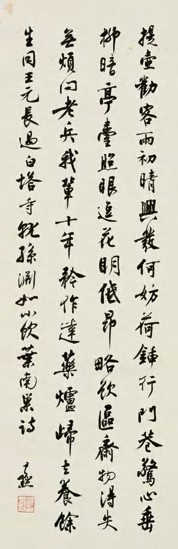 提壺勸客雨初晴興發何妨荷鍤行門巷驚心垂
柳暗亭臺照眼迄花明低昂略欲區齋物得失
無煩問老兵我輩十年矜作達藥爐歸去養餘
生同王元長過白塔寺訪孫淵如小飲葉南
詩